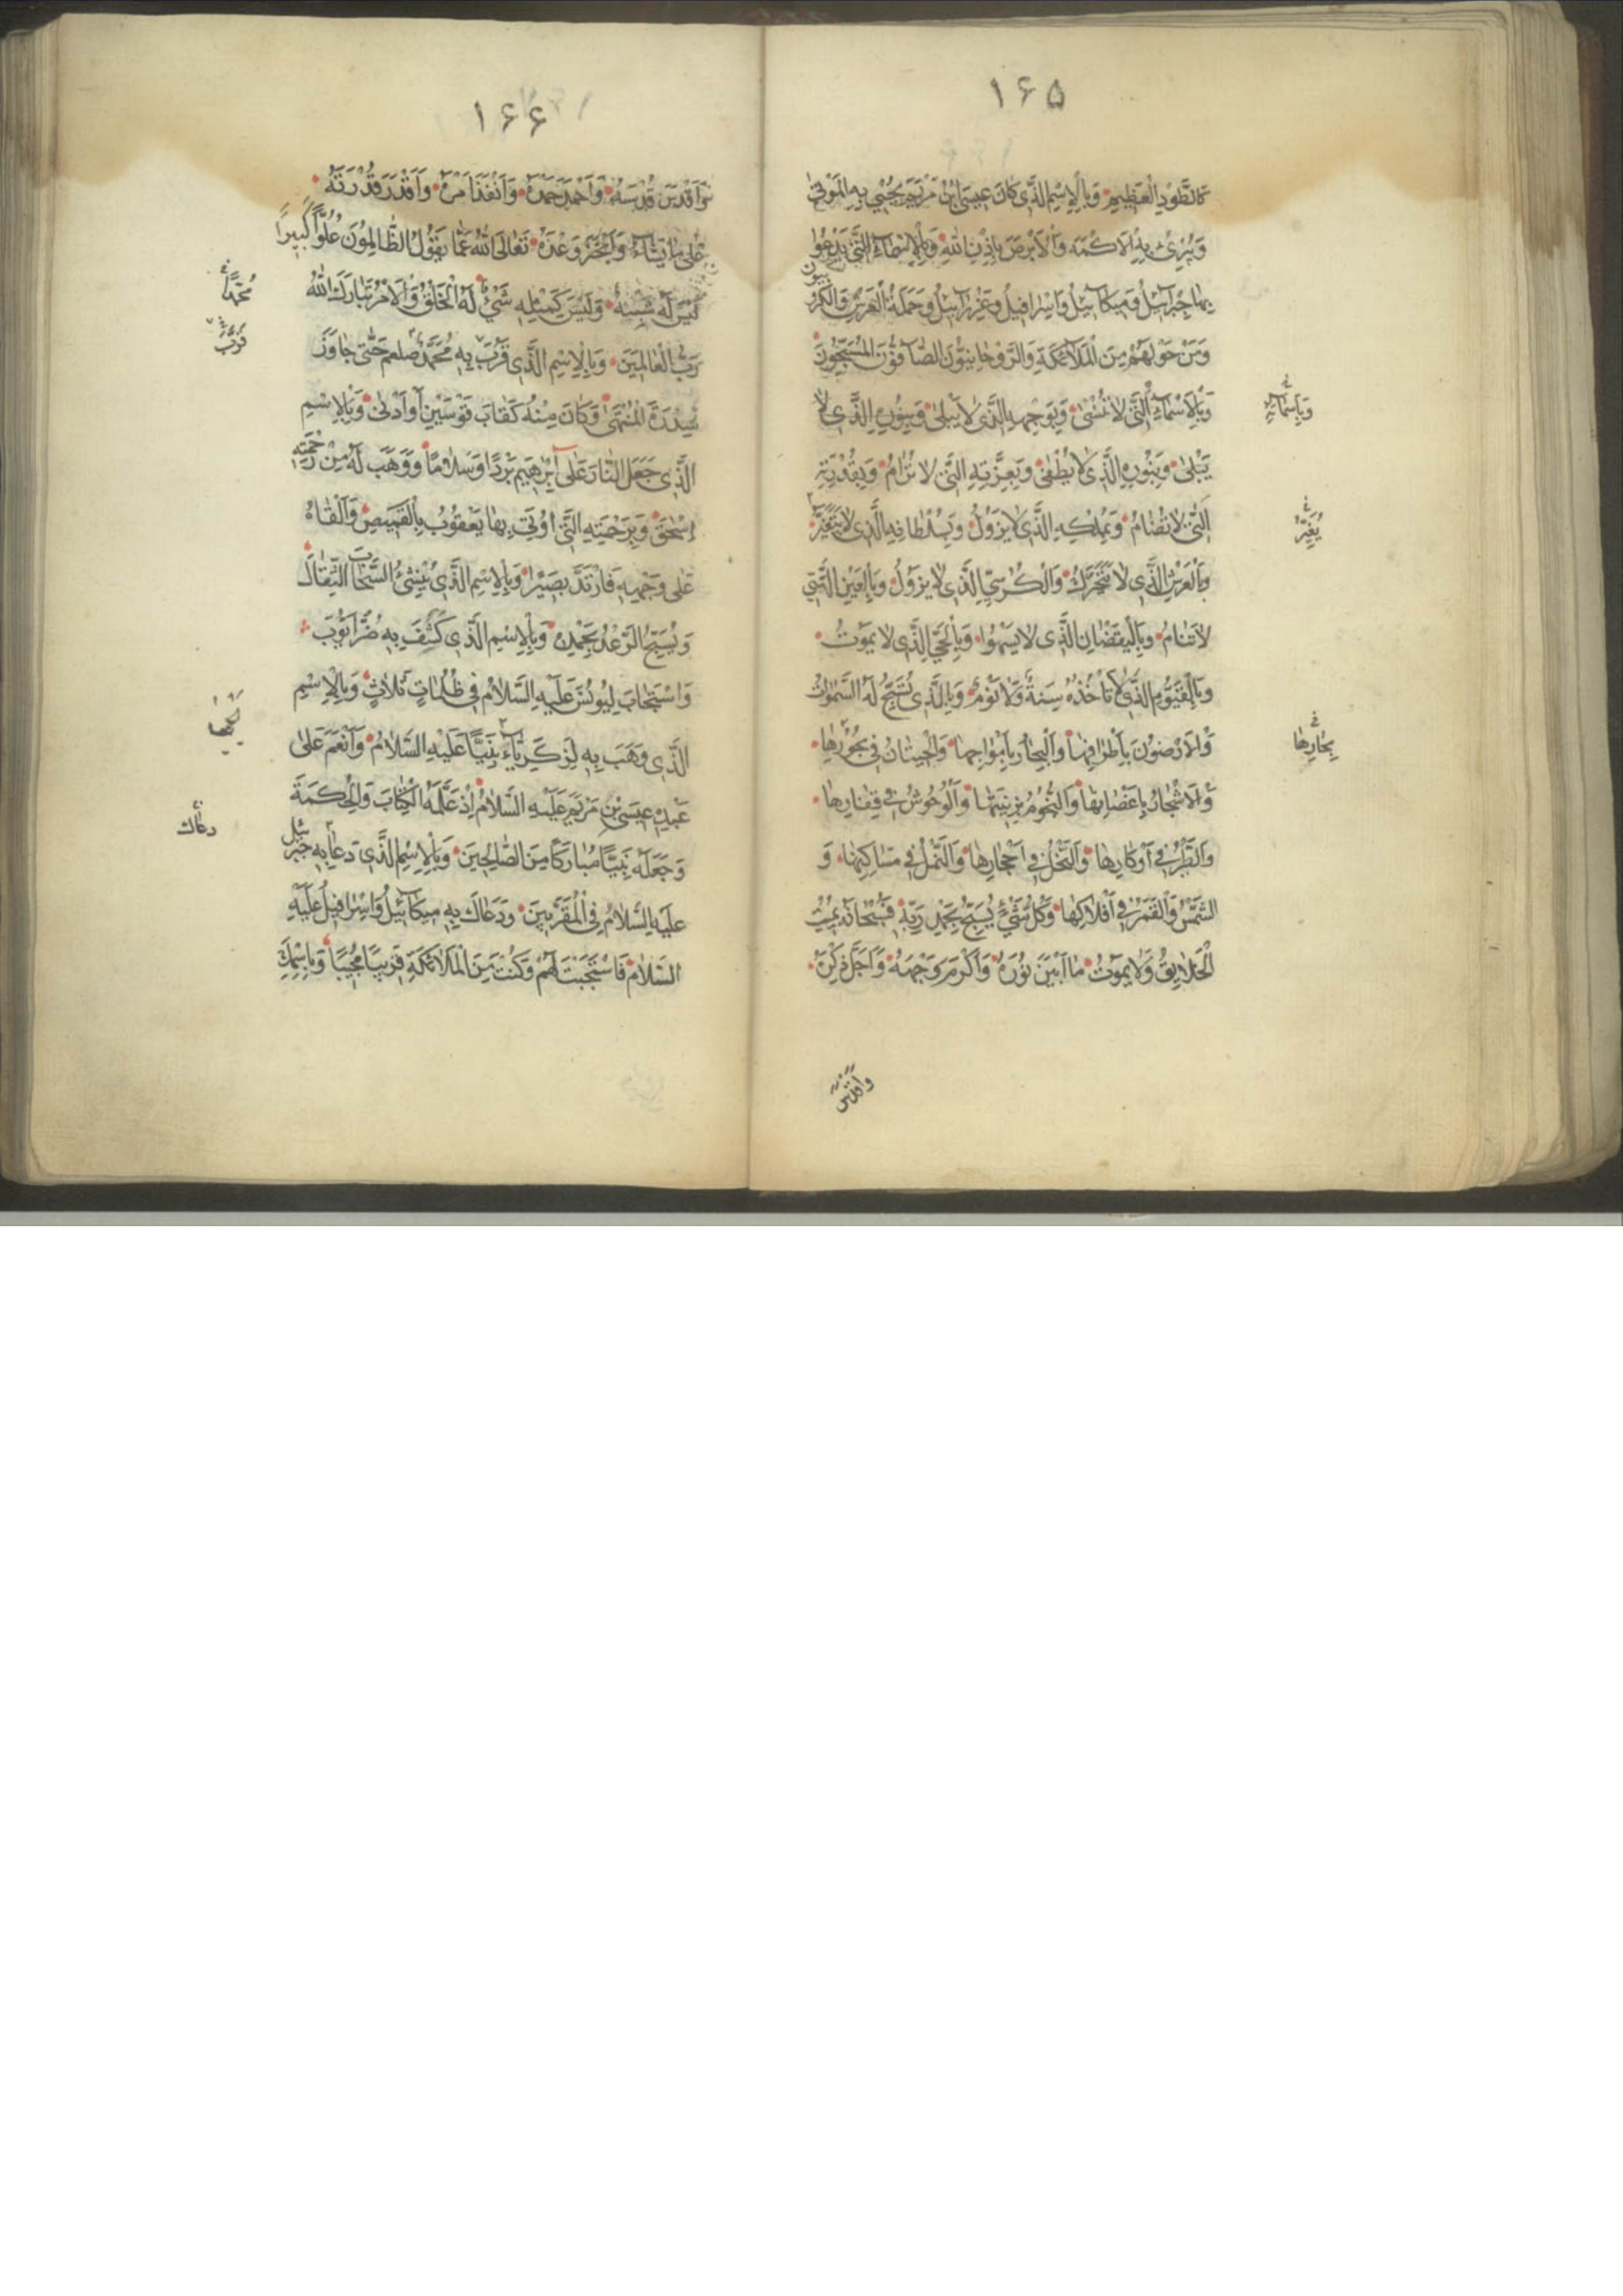 ۱۶۵
كَالطَّوْدِ الْعَظِيمِ وَبِالْاِسْمِ الَّذِي كَانَ عِيسَى ابْنُ مَرْيَمَ يُحْيِي بِهِ الْمَوْتىٰ
وَيُبْرِئُ بِهِ الْاَكْمَهَ وَالْاَبْرَصَ بِاِذْنِ اللّٰهِ وَبِالْاَسْمَاءِ الَّتِي يَدْعُوا
بِهَا جِبْرَآئِيلُ وَمِيكَآئِيلُ وَاِسْرَافِيلُ وَعِزْرَآئِيلُ وَحَمَلَةُ الْعَرْشِ وَالْكَرُّ
بِيُّونَ
وَمَنْ حَوْلَهُمْ مِنَ الْمَلَآئِكَةِ وَالرَّوْحَانِيُّونَ الصَّآفُّونَ الْمُسَبِّحُونَ
وَبِالْاَسْمَاءِ الَّتِي لَا تُنْسٰى وَبِوَجْهِهِ الَّذِي لَا يَبْلىٰ وَبِنُورِهِ الَّذِي لَا
وَبِاَسْمَائِهِ
يَبْلىٰ وَبِنُورِهِ الَّذِي لَا يُطْفٰى وَبِعِزَّتِهِ الَّتِي لَا تُرَامُ وَبِقُدْرَتِهِ
الَّتِي لَا تُضَامُ وَبِمُلْكِهِ الَّذِي لَا يَزُولُ وَبِسُلْطَانِهِ الَّذِي لَا يَتَغَيَّرُ
يُغَيَّرُ
وَبِالْعَرْشِ الَّذِي لَا يَتَحَرَّكُ وَالْكُرْسِيِّ الَّذِي لَا يَزُولُ وَبِالْعَيْنِ الَّتِي
لَا تَنَامُ وَبِالْيَقْضَانِ الَّذِي لَا يَسْهُوا وَبِالْحَيِّ الَّذِي لَا يَمُوتُ
وَبِالْقَيُّومِ الَّذِي لَا تَأْخُذُهُ سِنَةٌ وَلَا نَوْمٌ وَبِالَّذِي تُسَبِّحُ لَهُ السَّمٰوَاتُ
وَالْاَرَضُونَ بِاَطْرَافِهَا وَالْبِحَارُ بِاَمْوَاجِهَا وَالْحِيتَانُ فِي بُحُورِهَا
بِحَارِهَا
وَالْاَشْجَارُ بِاَغْصَانِهَا وَالنُّجُومُ بِزِينَتِهَا وَالْوُحُوشُ فِي قِفَارِهَا
وَالطَّيْرُ فِي اَوْكَارِهَا وَالنَّحْلُ فِي اَحْجَارِهَا وَالنَّمْلُ فِي مَسَاكِنِهَا وَ
الشَّمْسُ وَالْقَمَرُ فِي اَفْلَاكِهَا وَكُلُّ شَيْءٍ يُسَبِّحُ بِحَمْدِ رَبِّهِ فَسُبْحَانَهُ يُمِيتُ
الْخَلَايِقَ وَلَا يَمُوتُ مَا اَبْيَنَ نُورَهُ وَاَكْرَمَ وَجْهَهُ وَاَجَلَّ ذِكْرَهُ
وَاَقْدَسَ
۱۶۶
وَاَقْدَسَ قُدْسَهُ وَاَحْمَدَ حَمْدَهُ وَاَنْفَذَ اَمْرَهُ وَاَقْدَرَ قُدْرَتَهُ
عَلٰى مَا يَشَآءُ وَاَنْجَزَ وَعْدَهُ تَعَالَى اللّٰهُ عَمَّا يَقُولُ الظَّالِمُونَ عُلُوًّا كَبِيرًا
لَيْسَ لَهُ شِبْهٌ وَلَيْسَ كَمِثْلِهِ شَيْءٌ لَهُ الْخَلْقُ وَالْاَمْرُ تَبَارَكَ اللّٰهُ
مُحَمَّدًا
رَبُّ الْعَالَمِينَ وَبِالْاِسْمِ الَّذِي قَرَّبَ بِهِ مُحَمَّدٌ صلعم حَتّٰى جَاوَزَ
قَرَّبَ
سِدْرَةَ الْمُنْتَهٰى وَكَانَ مِنْهُ كَقَابَ قَوْسَيْنِ اَوْ اَدْنٰى وَبِالْاِسْمِ
الَّذِي جَعَلَ النَّارَ عَلٰى اِبْرٰهِيمَ بَرْدًا وَسَلَامًا وَوَهَبَ لَهُ مِنْ رَحْمَتِهِ
اِسْحٰقَ وَبِرَحْمَتِهِ الَّتِي اُوتِيَ بِهَا يَعْقُوبُ بِالْقَمِيصِ وَاَلْقَاهُ
عَلٰى وَجْهِهِ فَارْتَدَّ بَصِيرًا وَبِالْاِسْمِ الَّذِي يُنْشِئُ السَّحَابَ الثِّقَالَ
وَيُسَبِّحُ الرَّعْدُ بِحَمْدِهِ وَبِالْاِسْمِ الَّذِي كُشِفَ بِهِ ضُرُّ اَيُّوبَ
وَاسْتَجَابَ لِيُونُسَ عَلَيْهِ السَّلَامُ فِي ظُلُمَاتٍ ثَلَاثٍ وَبِالْاِسْمِ
يَحْيٰى
الَّذِي وَهَبَ بِهِ لِزَكَرِيَّاءَ نَبِيًّا عَلَيْهِ السَّلَامُ وَاَنْعَمَ عَلٰى
عَبْدِهِ عِيسَى بْنِ مَرْيَمَ عَلَيْهِ السَّلَامُ اِذْ عَلَّمَهُ الْكِتَابَ وَالْحِكْمَةَ
دعاك
وَجَعَلَهُ نَبِيًّا مُبَارَكًا مِنَ الصَّالِحِينَ وَبِالْاِسْمِ الَّذِي دَعَا بِهِ جَبْرَئِيل
عَلَيْهِ السَّلَامُ فِي الْمُقَرَّبِينَ وَدَعَاكَ بِهِ مِيكَآئِيلُ وَاِسْرَافِيلُ عَلَيْهِ
السَّلَامُ فَاسْتَجَبْتَ لَهُمْ وَكُنْتَ مِنَ الْمَلَآئِكَةِ قَرِيبًا مُجِيبًا وَبِاسْمِكَ